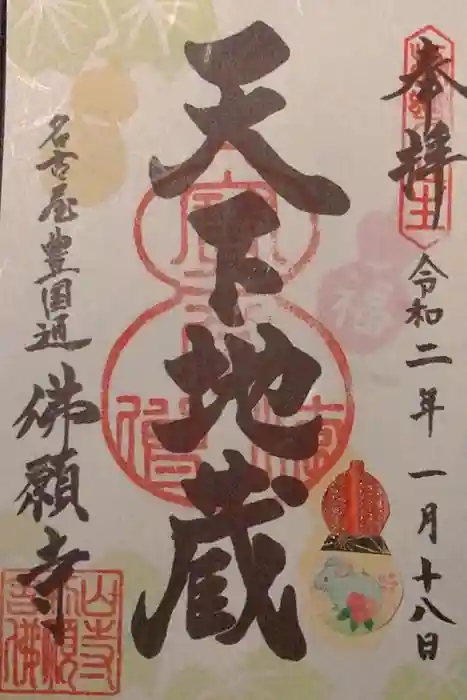 奉拝
令和二年 一月十八日
天下地蔵
福
名古屋豊国通
佛願寺